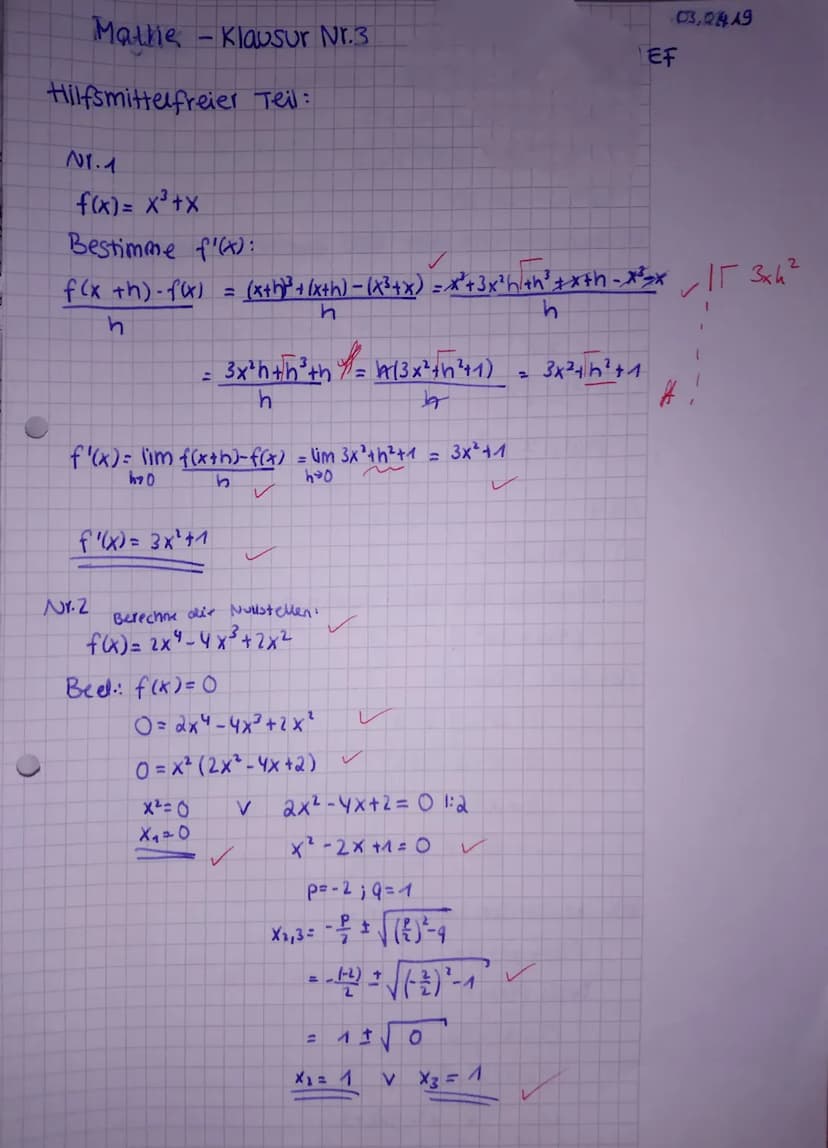 03.04.19
Mathe - Klausur Nr.3
EF
Hilfsmittelfreier Teil:
Nr. 1
f(x) = x³+x
Bestimme f'(x):
f(x+h)-f(x) / h = (x+h)³+(x+h)-(x³+x) / h = x³+3x²h+h³+x+h-x³-x / h ✓ |Γ 3xh²
= 3x²h+h³+h / h = h(3x²+h²+1) / h = 3x²+h²+1
f'(x) = lim h→0 f(x+h)-f(x) / h = lim h→0 3x²+h²+1 = 3x²+1
f'(x) = 3x²+1
Nr. 2 Berechne die Nullstellen:
f(x) = 2x⁴-4x³+2x²
Bed.: f(x) = 0
0 = 2x⁴-4x³+2x²
0 = x²(2x²-4x+2)
x²=0 v 2x²-4x+2=0 |:2
x₁=0
x²-2x+1=0
p=-2; q=1
x₂,₃ = -p/2 ± √((p/2)²-q)
= -(-2)/2 ± √((-2/2)²-1)
= 1 ± √0
x₂ = 1 v x₃ = 1